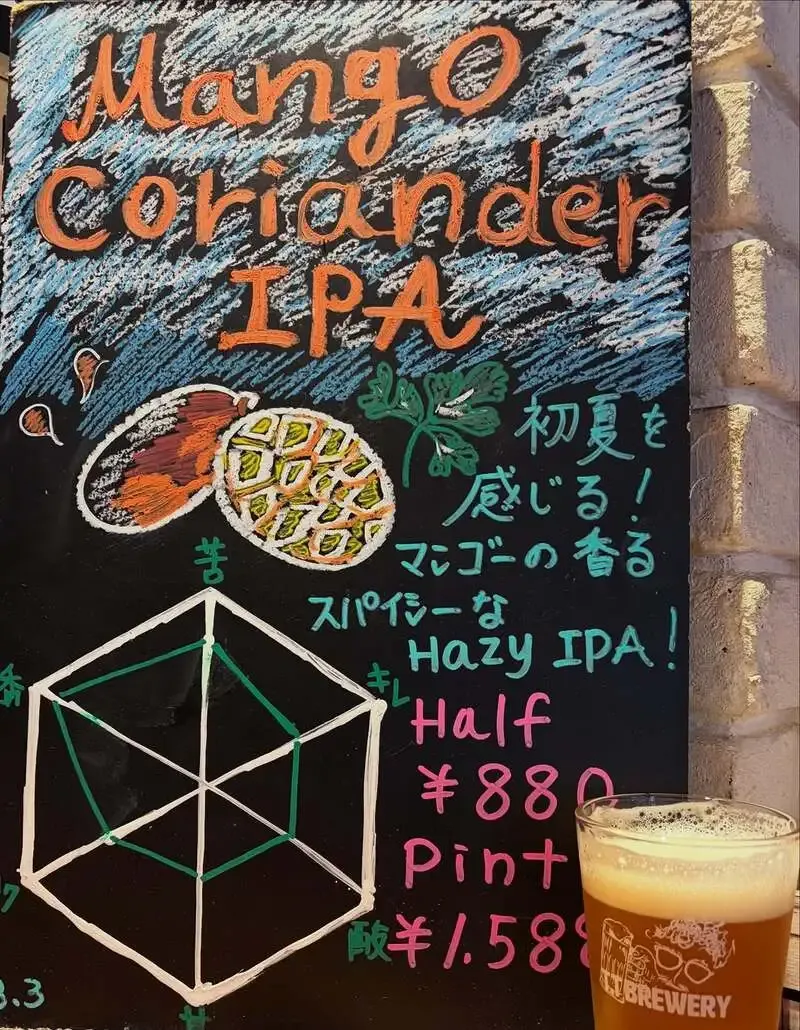 Mango
Coriander
IPA
初夏を
感じる!
マンゴーの香る
スパイシーな
Hazy IPA!
苦
香
キレ
酸
甘
Half
¥880
Pint
¥1.58
BREWERY